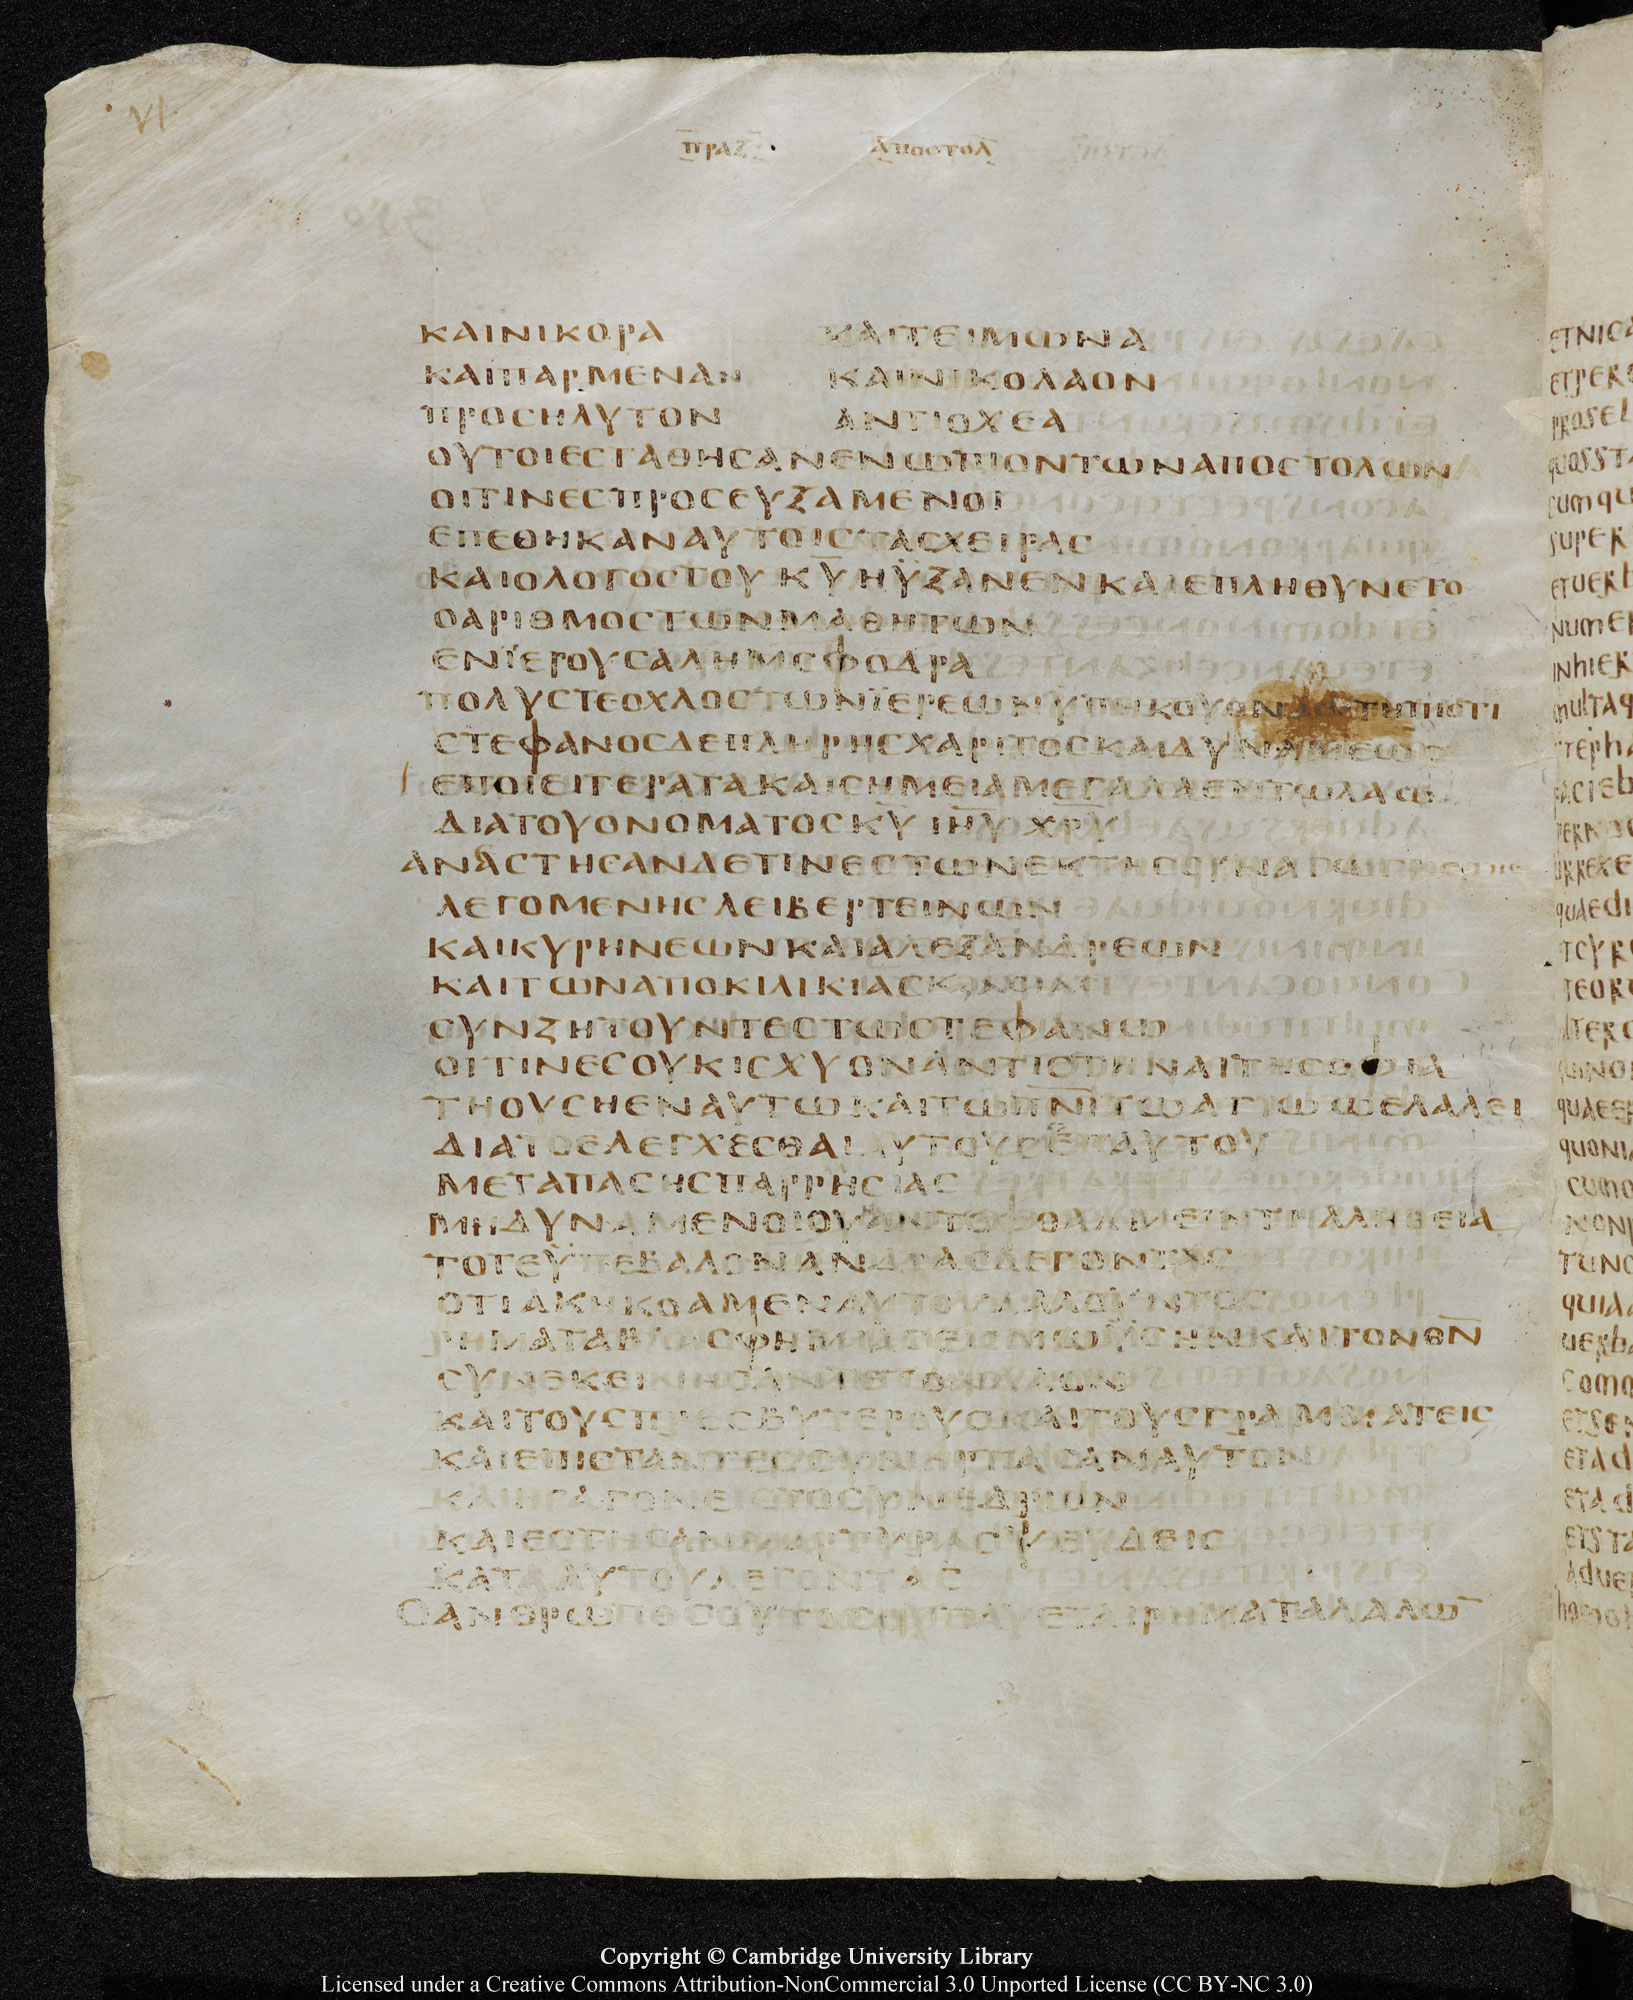 VI
πραξ αποστολ
ΚΑΙΝΙΚΟΡΑ ΚΑΙΤΕΙΜΩΝΑ
ΚΑΙΠΑΡΜΕΝΑΝ ΚΑΙΝΙΚΟΛΑΟΝ
ΠΡΟСΗΛΥΤΟΝ ΑΝΤΙΟΧΕΑ
ΟΥΤΟΙΕСΤΑΘΗСΑΝΕΝΩΠΙΟΝΤΩΝΑΠΟСΤΟΛΩΝ
ΟΙΤΙΝΕСΠΡΟСΕΥΞΑΜΕΝΟΙ
ΕΠΕΘΗΚΑΝΑΥΤΟΙСΤΑСΧΕΙΡΑС
ΚΑΙΟΛΟΓΟСΤΟΥΚ̅Υ̅ΗΥΞΑΝΕΝΚΑΙΕΠΛΗΘΥΝΕΤΟ
ΟΑΡΙΘΜΟСΤΩΝΜΑΘΗΤΩΝ
ΕΝΪΕΡΟΥСΑΛΗΜСΦΟΔΡΑ
ΠΟΛΥСΤΕΟΧΛΟСΤΩΝΪΕΡΕΩΝΥΠΗΚΟΥΟΝ ΤΗΠΙСΤΙ
СΤΕΦΑΝΟСΔΕΠΛΗΡΗСΧΑΡΙΤΟСΚΑΙΔΥΝΑΜΕΩС
ΕΠΟΙΕΙΤΕΡΑΤΑΚΑΙСΗΜΕΙΑΜΕΓΑΛΑΕΝΤΩΛΑΩ
ΔΙΑΤΟΥΟΝΟΜΑΤΟСΚ̅Υ̅ Ι̅Η̅Υ̅ Χ̅Ρ̅Υ̅
ΑΝΑСΤΗСΑΝΔΕΤΙΝΕСΤΩΝΕΚΤΗССΥΝΑΓΩΓΗС
ΛΕΓΟΜΕΝΗСΛΕΙΒΕΡΤΕΙΝΩΝ
ΚΑΙΚΥΡΗΝΕΩΝΚΑΙΑΛΕΞΑΝΔΡΕΩΝ
ΚΑΙΤΩΝΑΠΟΚΙΛΙΚΙΑС
СΥΝΖΗΤΟΥΝΤΕСΤΩСΤΕΦΑΝΩ
ΟΙΤΙΝΕСΟΥΚΙСΧΥΟΝΑΝΤΙСΤΗΝΑΙΤΗСΟΦΙΑ
ΤΗΟΥСΗΕΝΑΥΤΩΚΑΙΤΩΠ̅Ν̅Ι̅ΤΩΑΓΙΩΩΕΛΑΛΕΙ
ΔΙΑΤΟΕΛΕΓΧΕСΘΑΙΑΥΤΟΥСΕΠΑΥΤΟΥ
ΜΕΤΑΠΑСΗСΠΑΡΡΗСΙΑС
ΜΗΔΥΝΑΜΕΝΟΙΟΥΝΑΝΤΟΦΘΑΛΜΕΙΝΤΗΑΛΗΘΕΙΑ
ΤΟΤΕΥΠΕΒΑΛΟΝΑΝΔΡΑСΛΕΓΟΝΤΑС
ΟΤΙΑΚΗΚΟΑΜΕΝΑΥΤΟΥΛΑΛΟΥΝΤΟС
ΡΗΜΑΤΑΒΛΑСΦΗΜΙΑСΕΙСΜΩΥСΗΝΚΑΙΤΟΝΘ̅Ν̅
СΥΝΕΚΕΙΝΗСΑΝΤΕΤΟΝΛΑΟΝ
ΚΑΙΤΟΥСΠΡΕСΒΥΤΕΡΟΥСΚΑΙΤΟΥСΓΡΑΜΜΑΤΕΙС
ΚΑΙΕΠΙСΤΑΝΤΕССΥΝΗΡΠΑСΑΝΑΥΤΟΝ
ΚΑΙΗΓΑΓΟΝΕΙСΤΟСΥΝΕΔΡΙΟΝ
ΚΑΙΕСΤΗСΑΝΜΑΡΤΥΡΑСΨΕΥΔΕΙС
ΚΑΤΑΑΥΤΟΥΛΕΓΟΝΤΑС
ΟΑΝΘΡΩΠΟСΟΥΤΟСΟΥΠΑΥΕΤΑΙΡΗΜΑΤΑΛΑΛΩ̅
Copyright © Cambridge University Library
Licensed under a Creative Commons Attribution-NonCommercial 3.0 Unported License (CC BY-NC 3.0)